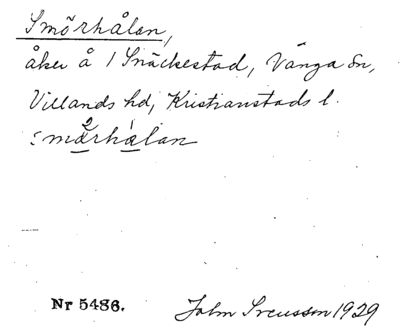 Smörhålan,
åker å 1 Snäckestad, Vånga sn,
Villands hd, Kristianstads l.
: smǻrhålan
Nr 5486.
John Svensson 1929